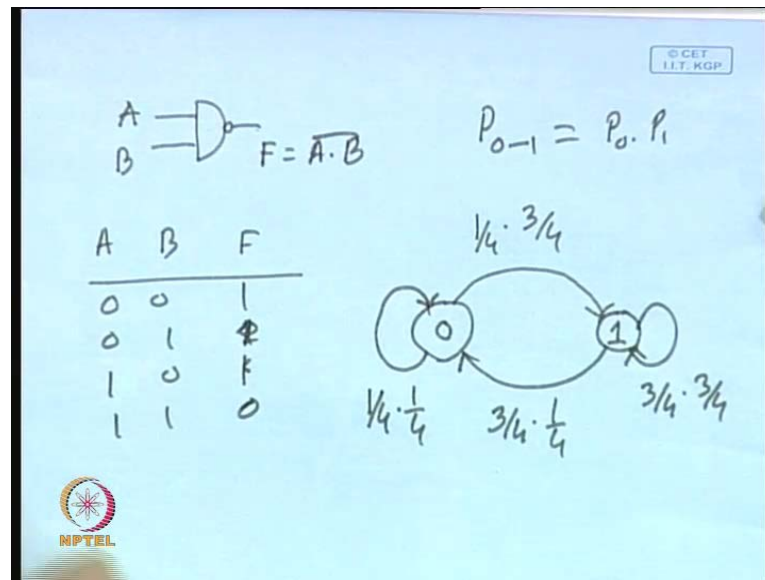 © CET
I.I.T. KGP
A
B
F = \overline{A · B}
P₀₋₁ = P₀ . P₁
A B F
0 0 1
0 1 1
1 0 1
1 1 0
1/4 · 3/4
0
1
1/4 · 1/4
3/4 · 1/4
3/4 · 3/4
NPTEL